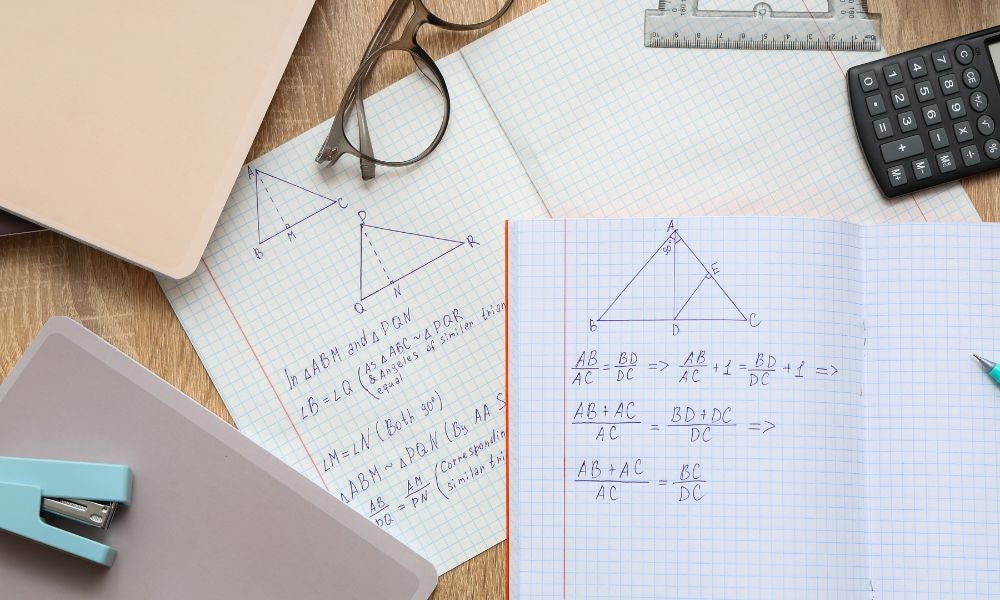 A
C
B
M
P
R
Q
N
In △ABM and △PQN
∠B = ∠Q (As △ABC ~ △PQR
& Angeles of similar trian
equal
∠M=∠N (Both 90°)
△ABM ~ △PQN (By AA S
AB/PQ = AM/PN (Correspondin
similar tri
A
90°
E
B
D
C
AB/AC = BD/DC => AB/AC + 1 = BD/DC + 1 =>
AB + AC/AC = BD + DC/DC =>
AB + AC/AC = BC/DC
C CE +/- √ %
7 8 9 × ÷
4 5 6 −
1 2 3 + M-
0 . = M+
10 9 8 7 6 5 4 3 2 1